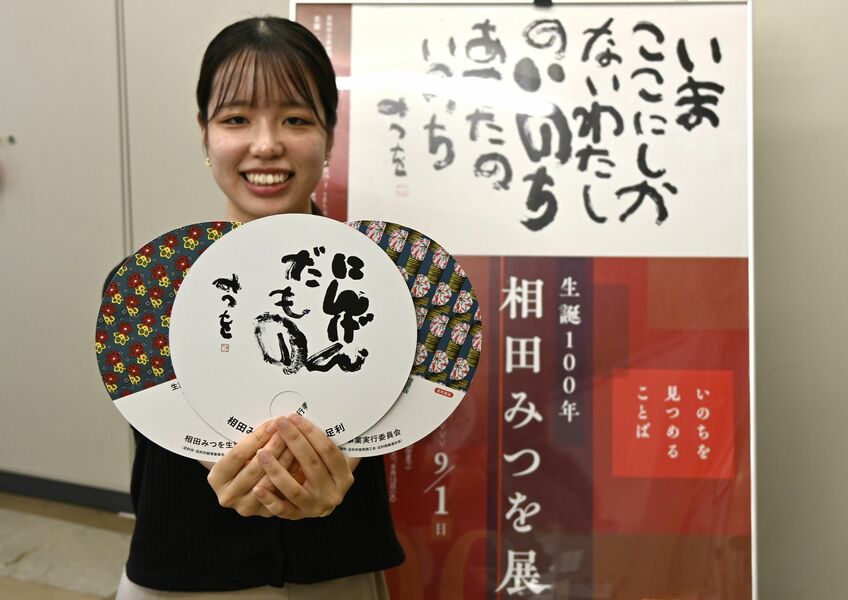 いま
ここにしか
ないわたし
のいのち
あなたの
いのち
みつを
生誕100年
相田みつを展
いのちを
見つめる
ことば
9/1日
にんげん
だもの
みつを